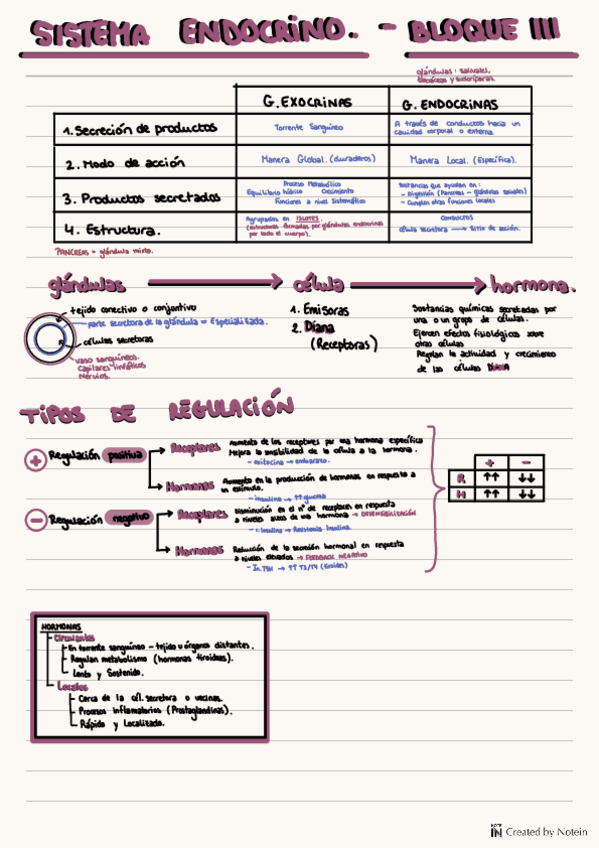 SISTEMA ENDOCRINO. - BLOQUE III
glándulas: salivales,
sebáceas y sudoríparas.
G. EXOCRINAS
G. ENDOCRINAS
1. Secreción de productos
Torrente Sanguíneo
A través de conductos hacia un
cavidad corporal o externa.
2. Modo de acción
Manera Global. (duraderos)
Manera Local. (Específica).
3. Productos secretados
Proceso Metabólico
Equilibrio hídrico Crecimiento
Funciones a nivel Sistemático
Sustancias que ayudan en:
- Digestión (Pancreas - glándulas saliales)
- Cumplen otras funciones locales
4. Estructura.
Agrupados en ISLOTES.
(estructuras formadas por glándulas endocrinas
por todo el cuerpo).
CONDUCTOS
célula secretora → sitio de acción.
PANCREAS = glándula mixta.
glándulas → célula → hormona.
tejido conectivo o conjuntivo
parte secretora de la glándula = Especializada.
células secretoras
vaso sanguíneos.
Capilares linfáticos
Nervios.
1. Emisoras
2. Diana
(Receptoras)
Sustancias químicas secretadas por
una o un grupo de células.
Ejercen efectos fisiológicos sobre
otras células
Regulan la actividad y crecimiento
de las células DIANA
TIPOS DE REGULACIÓN
+ Regulación positiva
Receptores
Aumento de los receptores por una hormona específica
Mejora la sensibilidad de la célula a la hormona.
- oxitocina → embarazo.
Hormonas
Aumento en la producción de hormonas en respuesta a
un estímulo.
- insulina → ↑↑ glucosa
- Regulación negativo
Receptores
Disminución en el nº de receptores en respuesta
a niveles altos de una hormona → DESENSIBILIZACIÓN
- insulina → Resistencia Insulina.
Hormonas
Reducción de la secreción hormonal en respuesta
a niveles elevados → FEEDBACK NEGATIVO
→ ↑↑ T3/T4 (tiroides)
+ -
R ↑↑ ↓↓
H ↑↑ ↓↓
HORMONAS
Circulantes
En torrente sanguíneo - tejido u órganos distantes.
Regulan metabolismo (hormonas tiroideas).
Lento y Sostenido.
Locales
Cerca de la cél. secretora o vecinas.
Procesos inflamatorios (Prostaglandinas).
Rápido y Localizado.
NOTE IN Created by Notein